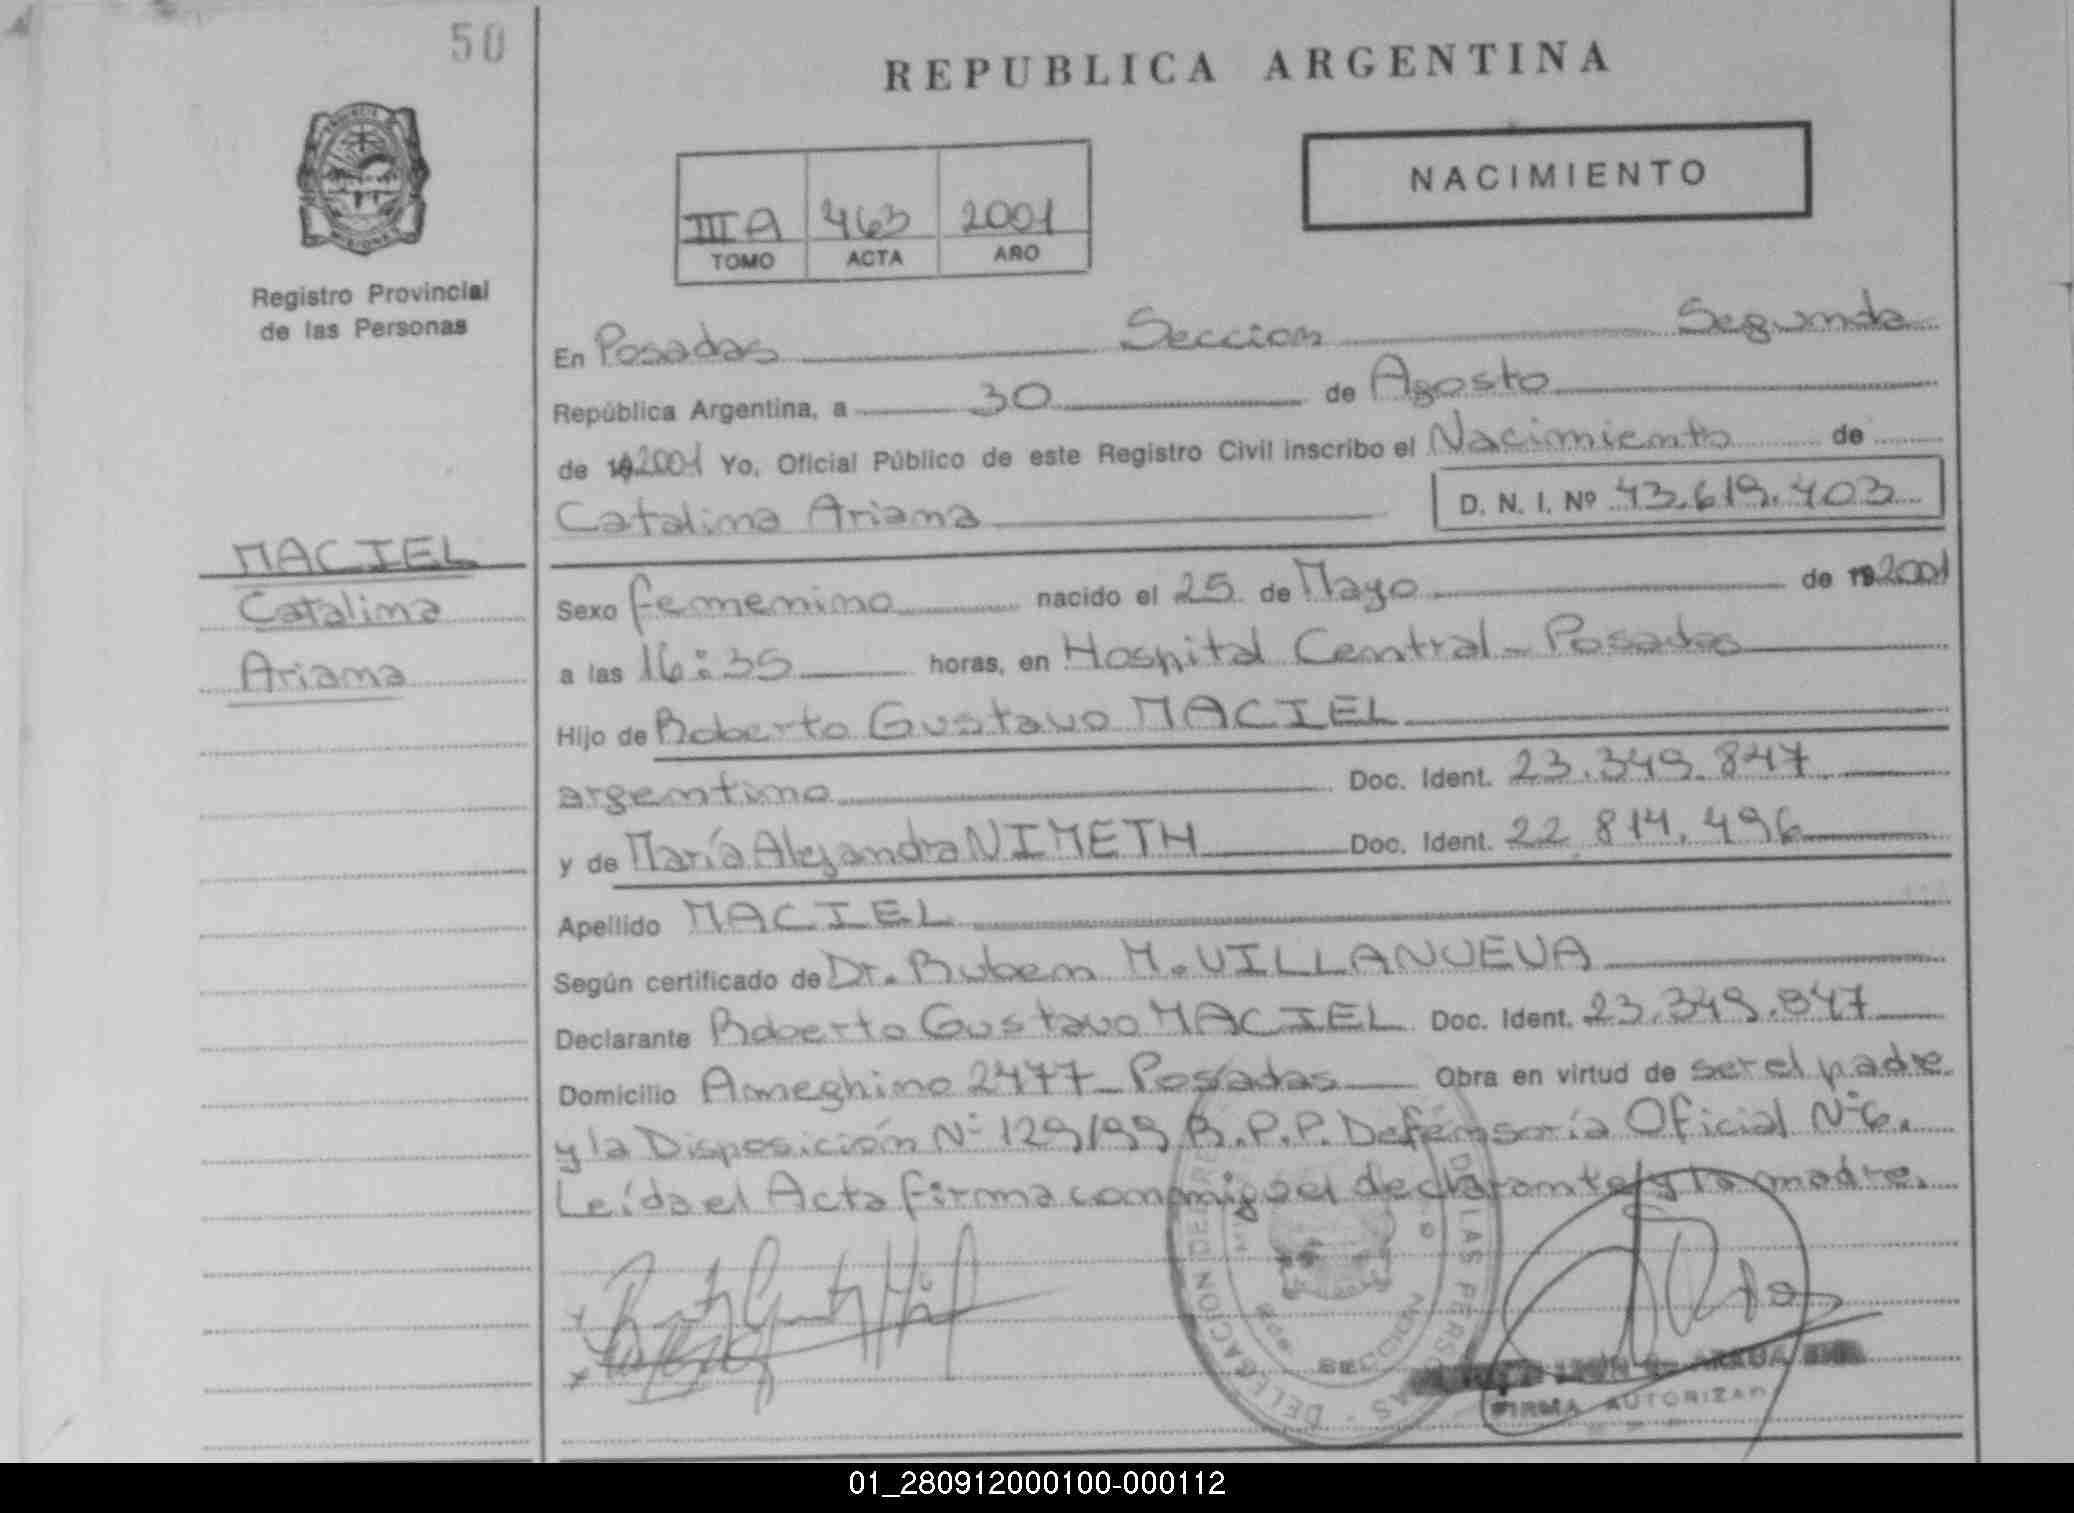 50
REPUBLICA ARGENTINA
NACIMIENTO
III A 463 2001
TOMO ACTA AÑO
Registro Provincial
de las Personas
En Posadas Seccion Segunda
República Argentina, a 30 de Agosto
de 192001 Yo, Oficial Público de este Registro Civil inscribo el Nacimiento de
Catalina Ariana D. N. I. Nº 43.619.403
MACIEL
Catalina
Ariana
Sexo femenino nacido el 25 de Mayo de 192001
a las 16:35 horas, en Hospital Central - Posadas
Hijo de Roberto Gustavo MACIEL
argentino Doc. Ident. 23.349.847
y de María Alejandra NIMETH Doc. Ident. 22.814.496
Apellido MACIEL
Según certificado de Dr. Ruben M. VILLANUEVA
Declarante Roberto Gustavo MACIEL Doc. Ident. 23.349.847
Domicilio Ameghino 2477 - Posadas Obra en virtud de ser el padre
y la Disposición Nº 129/99 R.P.P. Defensoría Oficial Nº 6.
Leída el Acta firma conmigo el declarante y la madre.
DELEGACION DE LAS PERSONAS
SECCION
FIRMA AUTORIZADA
01_280912000100-000112